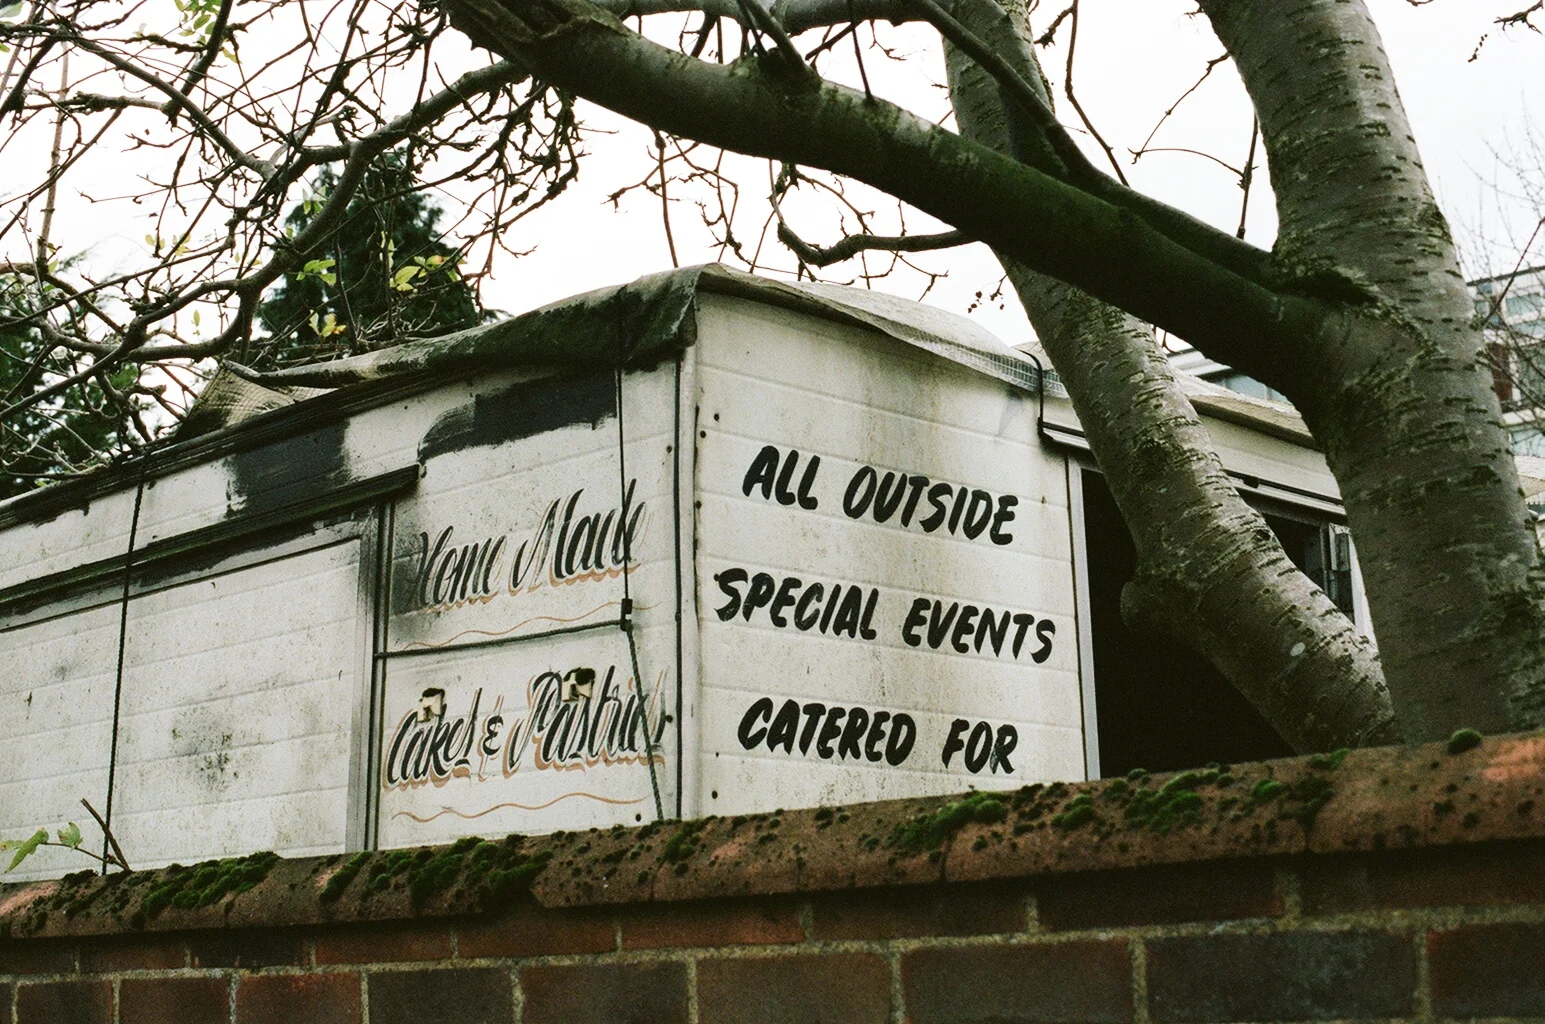 Home Made
Cakes & Pastries
ALL OUTSIDE
SPECIAL EVENTS
CATERED FOR